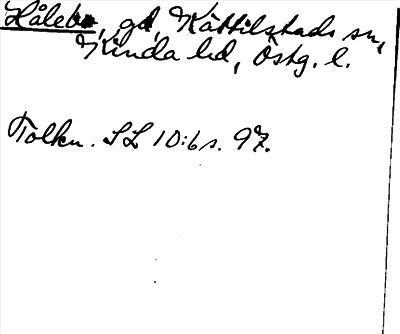 Hålebo, gd, Kättilstads sn,
Kinda hd, Östg. l.
Tolkn. SL 10:6 s. 97.